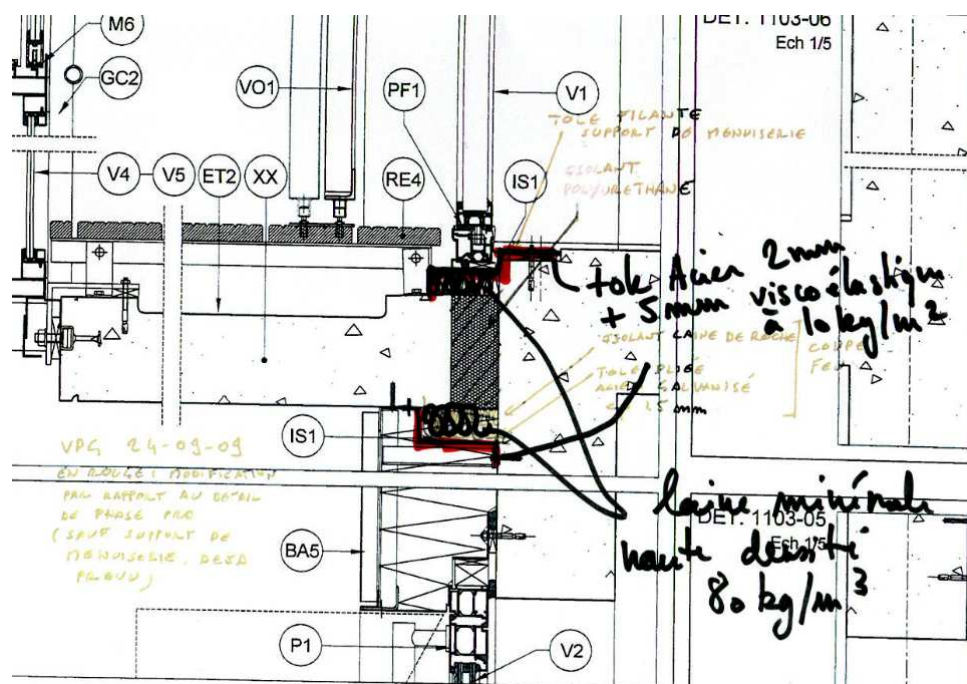 M6
DET. 1103-06
Ech 1/5
GC2
VO1
PF1
V1
TOLE FILANTE
SUPPORT DE MENUISERIE
ISOLANT
POLYURETHANE
V4
V5
ET2
XX
RE4
IS1
tole Acier 2mm
+ 5mm viscoélastique
à 10kg/m²
ISOLANT LAINE DE ROCHE
TOLE PLIÉE
ACIER GALVANISÉ
15 mm
COUPE
FEU
IS1
VPG 24-09-09
EN ROUGE : MODIFICATION
PAR RAPPORT AU DETAIL
DE PHASE PRO
(SAUF SUPPORT DE
MENUISERIE, DEJA
PREVU)
laine minérale
haute densité
80 kg/m³
DET. 1103-05
Ech 1/5
BA5
P1
V2